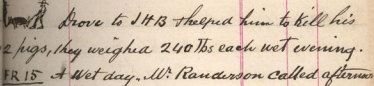 Drove to J H B & helped him to kill his
2 pigs, they weighed 240 lbs each wet evening.
FR 15 A wet day. Mr. Randerson called afternoon